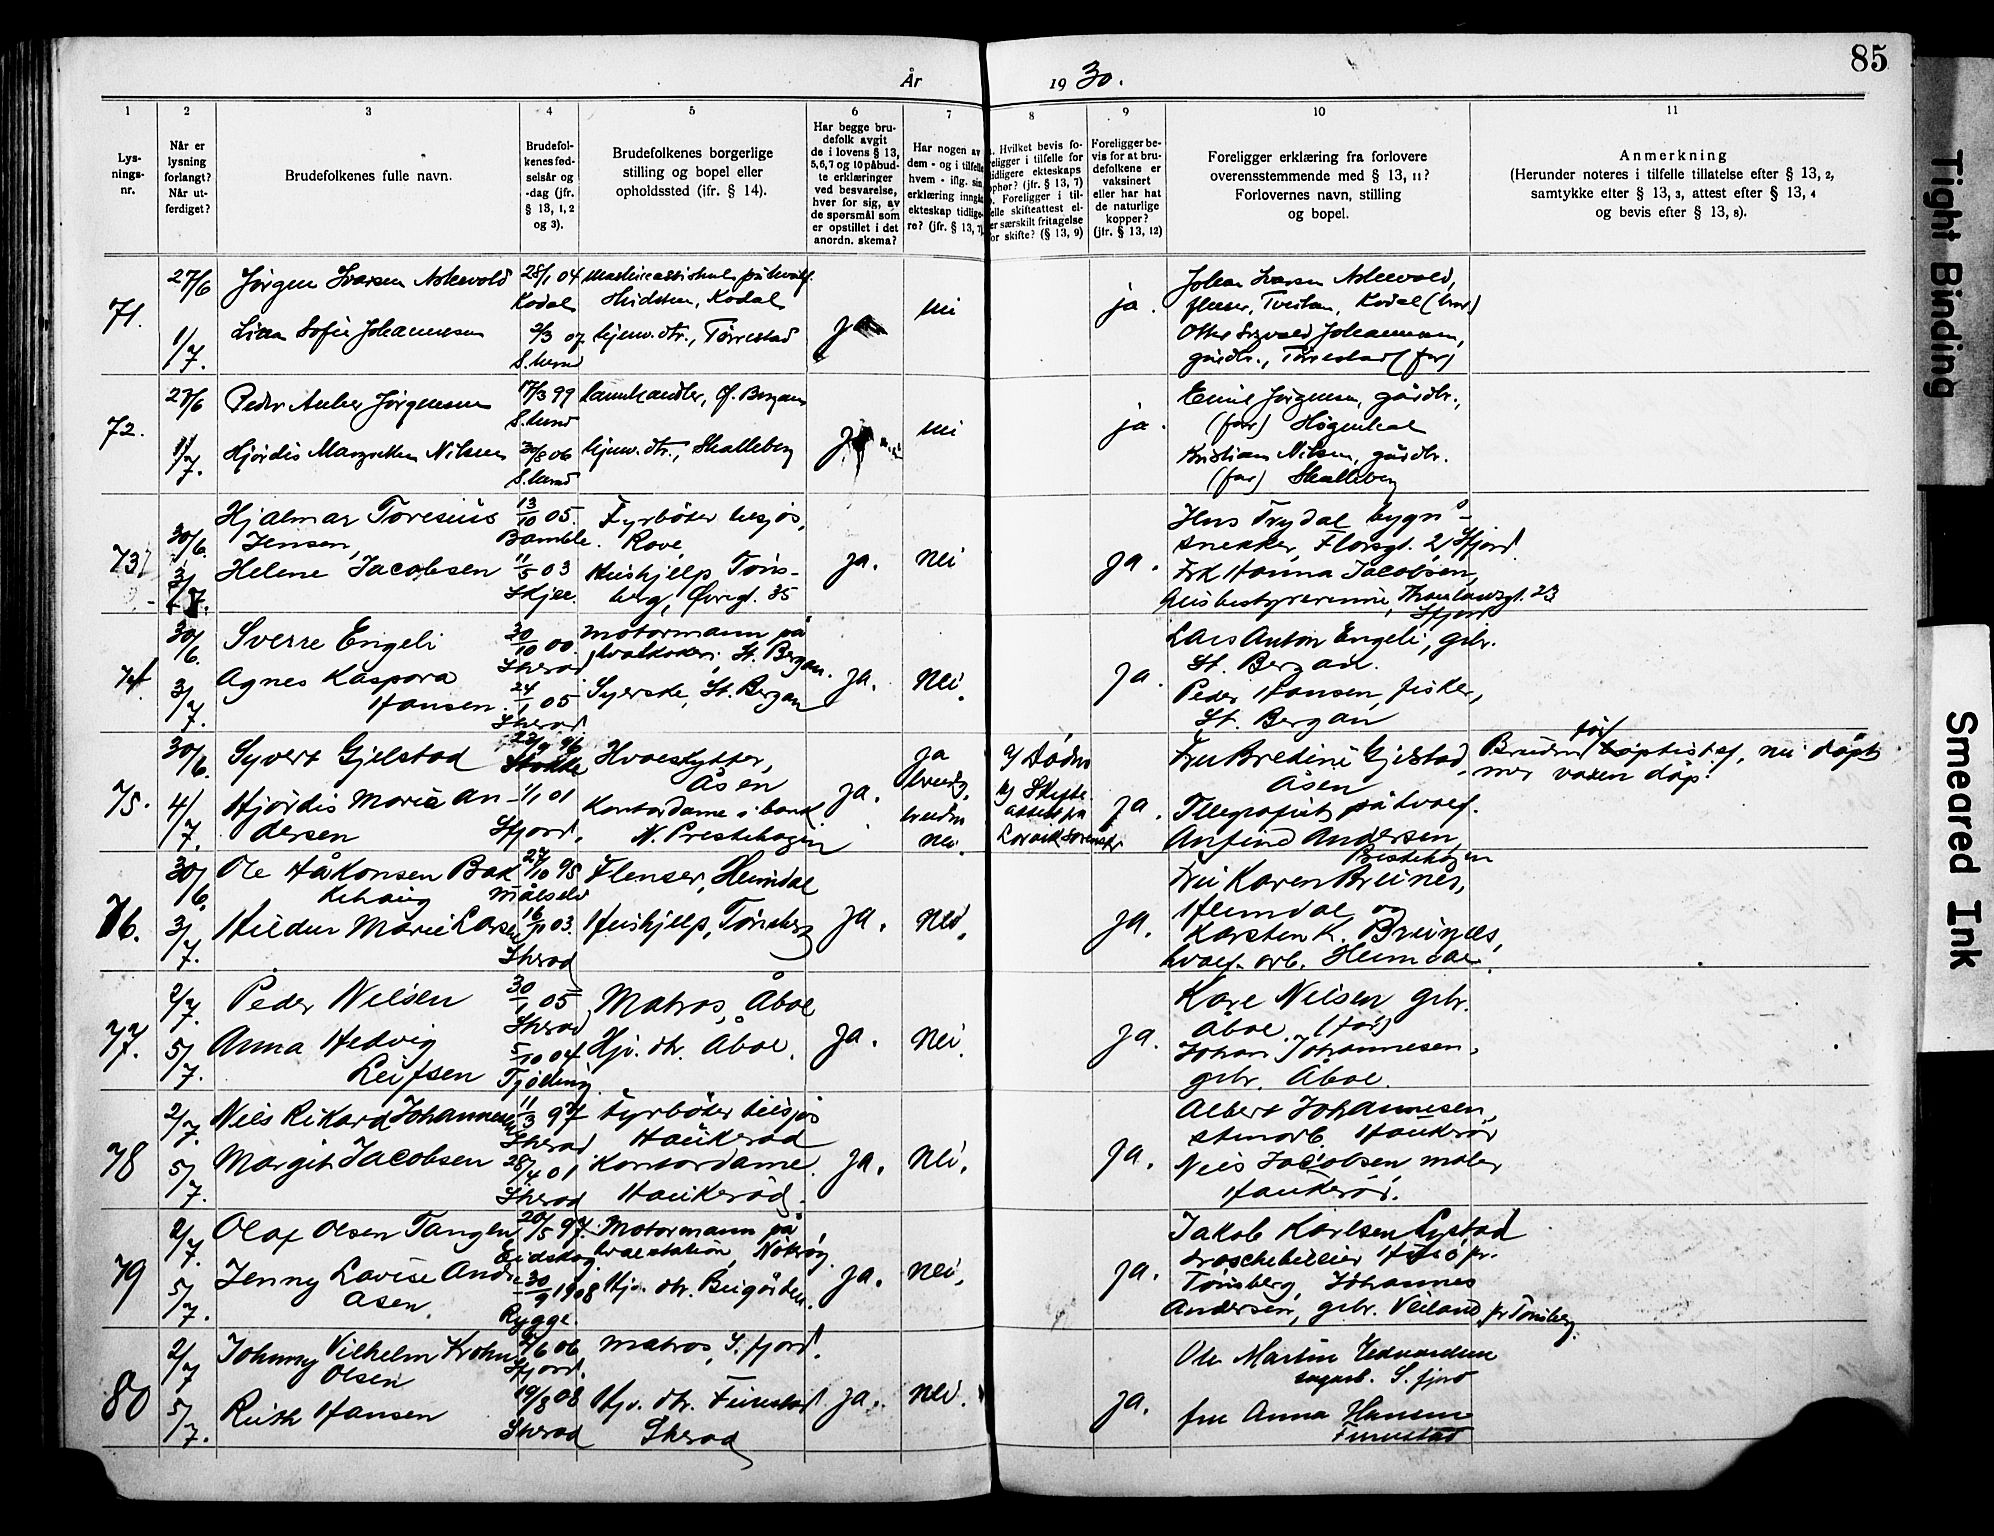 85
År 1930.
1
2
3
4
5
6
7
8
9
10
11
Lys-
nings-
nr.
Når er
lysning
forlangt?
Når ut-
ferdiget?
Brudefolkenes fulle navn.
Brudefol-
kenes fød-
selsår og
-dag (jfr.
§ 13, 1, 2
og 3).
Brudefolkenes borgerlige
stilling og bopel eller
opholdssted (ifr. § 14).
Har begge bru-
defolk avgit
de i lovens § 13,
5,6,7 og 10 påbud-
te erklæringer
ved besvarelse,
hver for sig, av
de spørsmål som
er opstillet i det
anordn. skema?
Har nogen av
dem - og i tilfelle
hvem - iflg. sin
erklæring inngå
ekteskap tidlige-
re? (jfr. § 13, 7)
Hvilket bevis fo-
religger i tilfelle for
tidligere ekteskaps
ophør? (jfr. § 13, 7)
Foreligger i til-
felle skifteattest el-
er særskilt fritagelse
for skifte? (§ 13, 9)
Foreligger be-
vis for at bru-
defolkene er
vaksinert
eller har hat
de naturlige
kopper?
(jfr. § 13, 12)
Foreligger erklæring fra forlovere
overensstemmende med § 13, 11?
Forlovernes navn, stilling
og bopel.
Anmerkning
(Herunder noteres i tilfelle tillatelse efter § 13, 2,
samtykke efter § 13, 3, attest efter § 13, 4
og bevis efter § 13, 8).
71.
27/6
1/7.
Jørgen Ivarsen Askevold
28/1 04
Kodal
Kodal
Sofie Johannessen
2/3 07
hjemv. dtr., Tørrestad
ja
nei
ja.
Johan Ivarsen Askevold,
flenser, Kodal (bror)
Sigvald Johannessen,
gårdbr., Tørrestad (far)
72.
27/6
1/7.
Peder Jørgensen
17/3 99
Hjördis Nilsen
30/8 06
hjemv. dtr., Skalleberg
nei
ja.
Emil Jørgensen, gårdbr.,
(far)
Kristian Nilsen, gårdbr.
(far) Skalleberg
73
30/6.
3/7.
Hjalmar Toresius
Jensen,
Helene Jacobsen
13/10 05.
Bamble.
11/5 03
Skjee.
Fyrböter tilsjös,
Rove
Hushjelp, Töns-
berg, Övregt. 35
ja.
nei
ja.
Trydal bygn.
snekker, 2, Sfjord.
Frk Hanna Jacobsen,
Husbestyrerinne, 23
Sfjord
74
30/6.
3/7.
Sverre Engeli
Agnes Kaspara
Hansen.
30/10 00.
Sherad
24/1 05
Sherad
Motormann på
hvalkokeri, St. Bergan.
Syerske, St. Bergan
ja.
nei.
ja.
Lars Anton Engeli, gbr.
St. Bergan.
Peder Hansen, fisker,
St. Bergan
75.
30/6.
4/7.
Syvert Gjelstad
Hjördis Marie An-
dersen
23/9 96
Stokke
1/1 01
Sfjord.
Hvalskytter,
Åsen
Kontordame i bank
N. Prestehagen
ja.
ja
brudg.
bruden
nei.
a/ Döds
b/ Skifte-
attest fra
Larvik Sorenskr
ja.
Fru Bredine Gjelstad,
Åsen
Telegrafist på hvalf.
Anfind Andersen,
Prestehagen
Bruden för baptist, nu döpt
med voxen dåp.
76.
30/6.
3/7.
Ole Håkonsen Bak
kehaug
Hildur Marie Larsen
27/10 95
Målselv
16/11 03.
Sherad
Flenser, Heimdal
Hushjelp, Tönsberg
ja.
nei.
ja.
Fru Karen Breines,
Heimdal og
Karsten K. Breines,
hvalf. arb. Heimdal.
77.
2/7.
5/7.
Peder Nilsen
Anna Hedvig
Leifsen
30/1 05
Sherad
5/10 04
Tjölling
Matros, Åbol
Hjv. dtr. Åbol.
ja.
nei.
ja.
Kare Nilsen gbr.
Åbol (far)
Johan Johannesen,
gbr. Åbol.
78
2/7.
5/7.
Nils Rikard Johannesen
Margit Jacobsen
11/3 97
Sherad
28/4 01
Sherad
Fyrböter tilsjös
Haukeröd
Kontordame.
Haukeröd.
ja.
nei.
ja.
Albert Johannesen,
stenarb. Haukeröd
Nils Jacobsen maler
Haukeröd.
79
2/7.
5/7.
Olaf Olsen Tangen
Jenny Lovise Andre
asen.
20/5 97.
Eidskog
30/9 1908
Rygge.
Motormann på
hvalstation,
Hjv. dtr. Bugården.
ja.
nei.
ja.
Jakob Karlsen Lystad
droschebileier Husö pr.
Tönsberg, Johannes
Andersen, gbr. Veiland pr Tönsberg.
80
2/7
5/7.
Johnny Vilhelm Krohn
Olsen
Ruth Hansen
6/6 06
Sfjord.
19/8 08
Sherad
Matros, S. fjord.
Hjv. dtr. Furustad
Sherad
ja.
nei.
ja.
Ole Martin Edvardsen
S. fjord
fru Anna Hansen
Furustad
Tight Binding
Smeared Ink